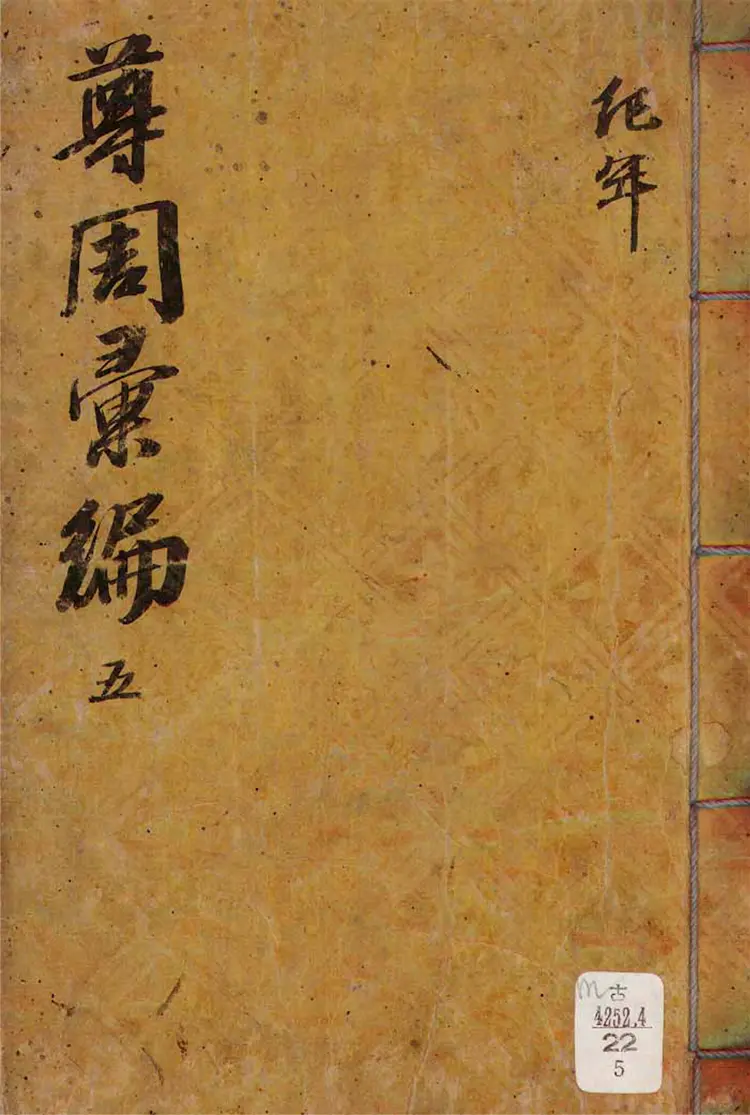 紀年
尊周彙編 五
古
4252.4
22
5